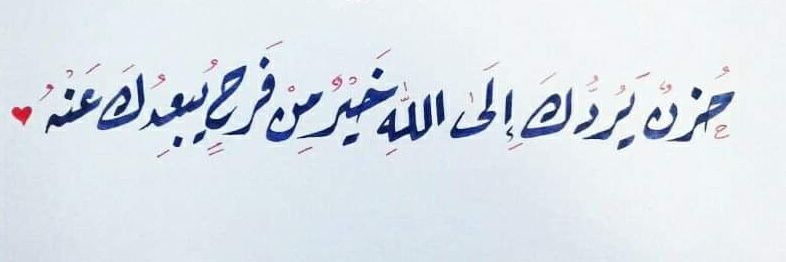 حُزنٌ يَرُدُّكَ إِلَىٰ اللَّهِ خَيْرٌ مِنْ فَرحٍ يُبعِدُكَ عَنْهُ